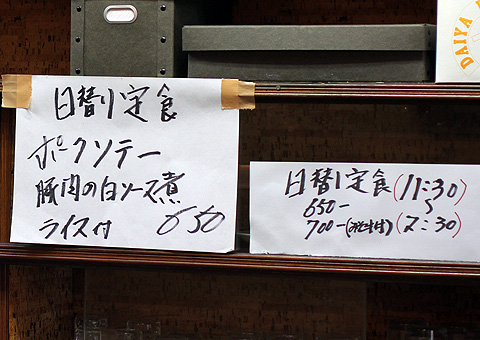 日替り定食
ポークソテー
豚肉の白ソース煮
ライス付 650
日替り定食(11:30)
650- 〜
700-(みそ汁付)(2:30)
DAIYA